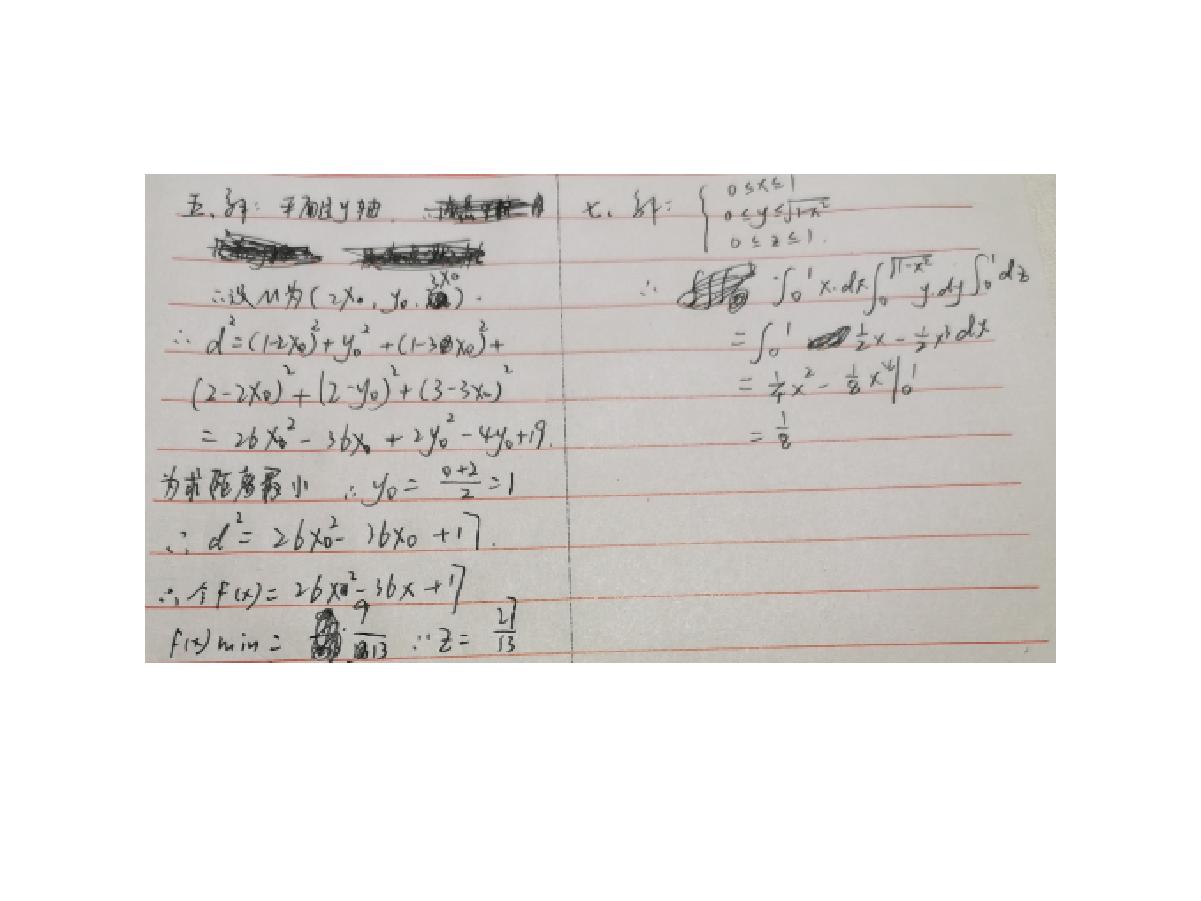 五、解：平面过y轴.
∴设M为(2x₀, y₀, 3x₀).
∴ d²=(1-2x₀)²+y₀²+(1-3x₀)²+
(2-2x₀)²+(2-y₀)²+(3-3x₀)²
= 26x₀²-36x₀+2y₀²-4y₀+19.
为求距离最小 ∴y₀= \frac{0+2}{2}=1
∴ d²= 26x₀²-36x₀+17.
∴令F(x)=26x²-36x+17
F(x)min= \frac{9}{13} ∴z= \frac{27}{13}
七、解： { 0≤x≤1
0≤y≤√(1-x²)
0≤z≤1.
∴ ∫₀¹ x·dx ∫₀^{√(1-x²)} y·dy ∫₀¹ dz
= ∫₀¹ ½x-½x³dx
= ¼x²-⅛x⁴|₀¹
= ⅛